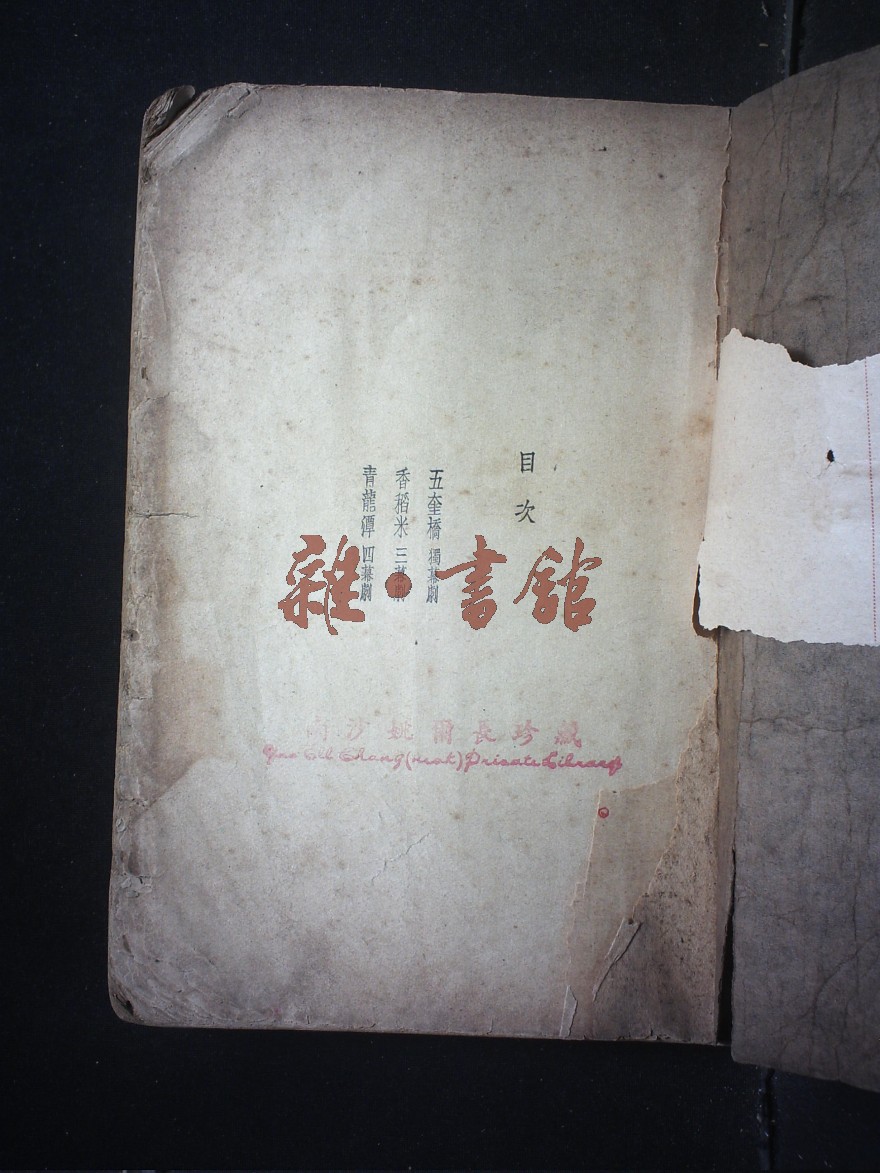 目次
五奎橋 獨幕劇
香稻米 三幕劇
青龍潭 四幕劇
雜・書館
南沙姚爾長珍藏
Private Library